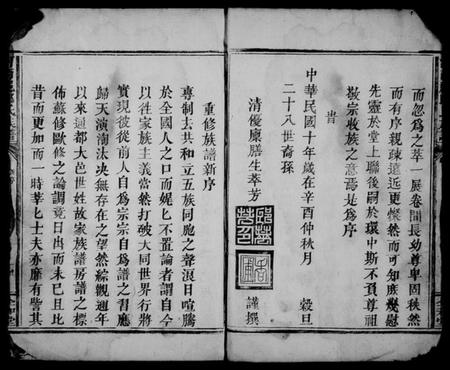 而忽爲之萃一展卷間長幼尊卑固秩然
而有序親疎遠近更燦然而可知庶幾慰
先靈於堂上聯後嗣於環中斯不負尊祖
敬宗收族之意焉是爲序
旹
中華民國十年歲在辛酉仲秋月 穀旦
二十八世裔孫
清優廩膳生萃芳 謹撰
重修族譜新序
專制去共和立五族同胞之聲浪日喧騰
於全國人之口而娓匕不置論者謂自今
以徃家族主義當然打破大同世界行將
實現彼從前人自爲宗宗自爲譜之書應
歸天演淘汰决無存在之望然綜觀週年
以來通都大邑世姓故家族譜房譜之標
佈蘇修歐修之論調竟日出而未已且比
昔而更加而一時莘匕士夫亦靡有訾其